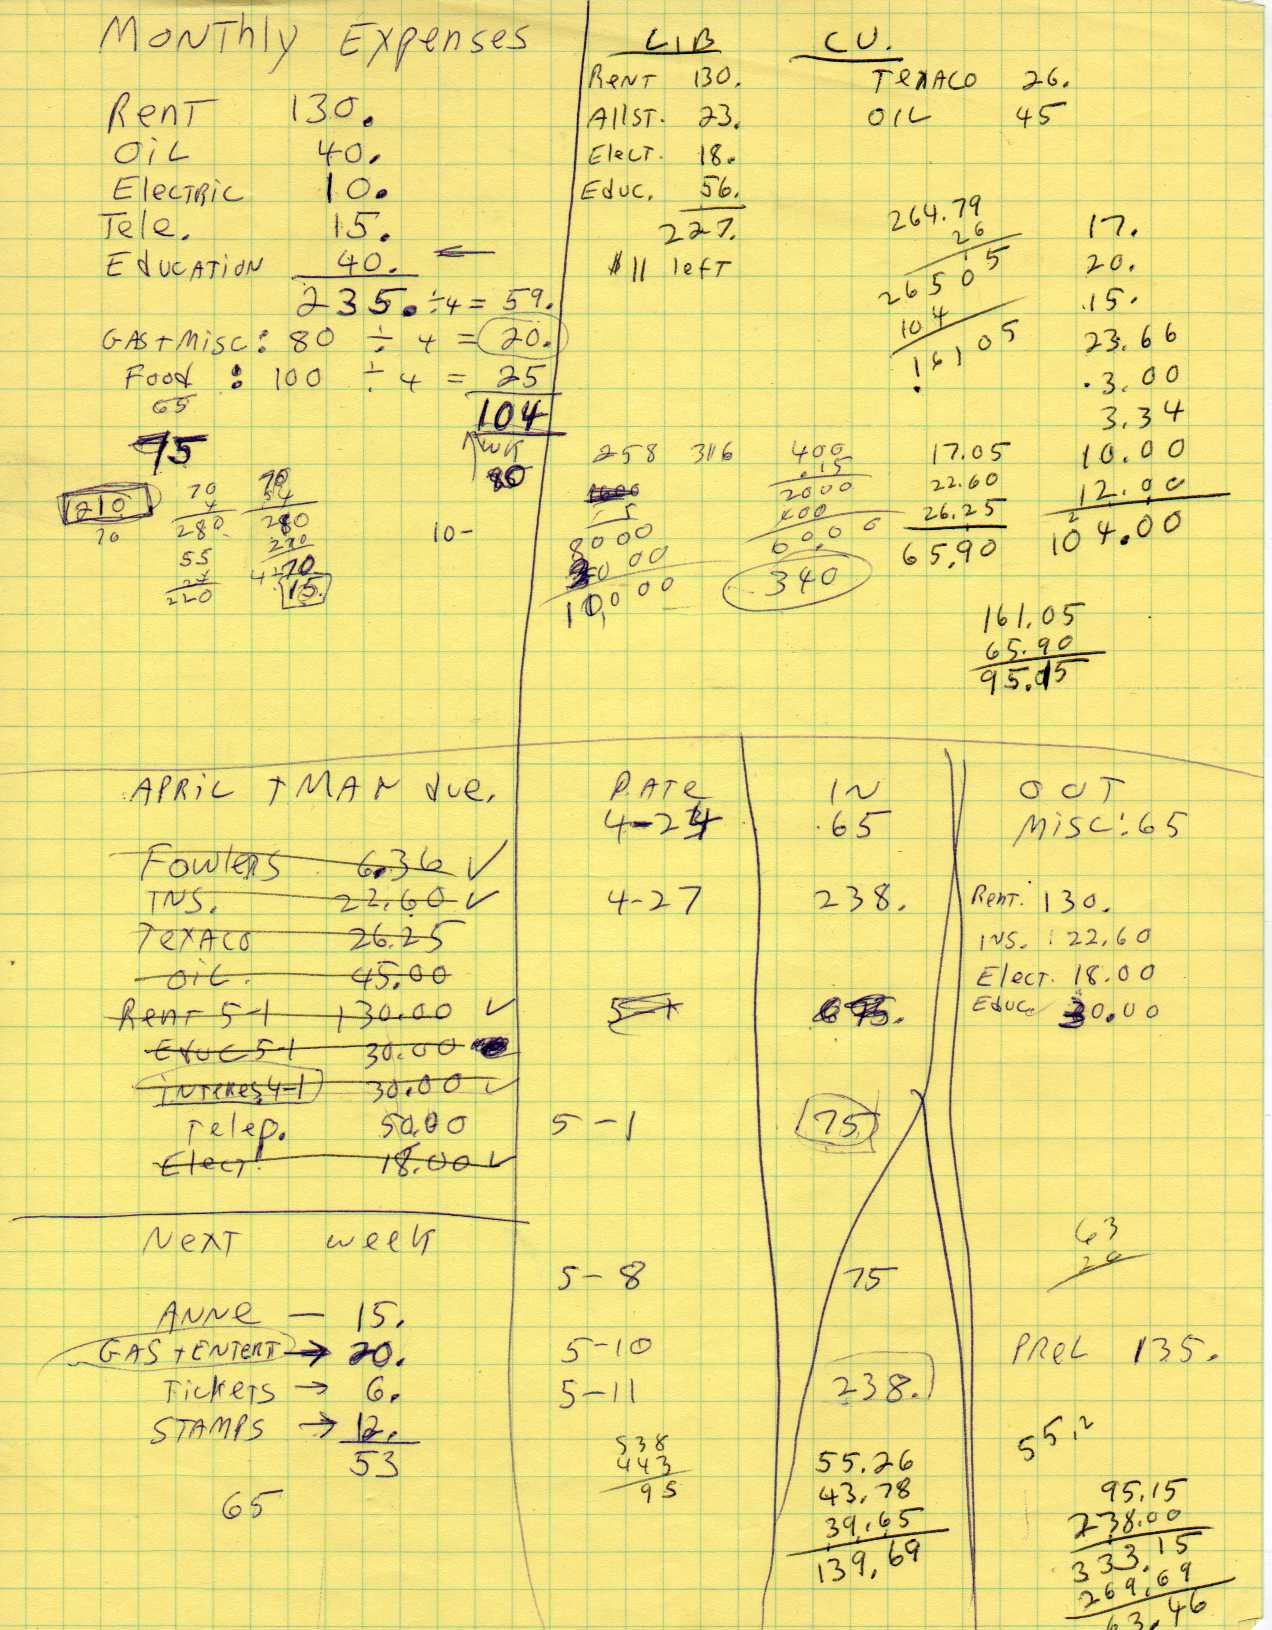 Monthly Expenses
Rent 130.
OiL 40.
Electric 10.
Tele. 15.
Education 40. ←
235. ÷4 = 59.
GAS + Misc: 80 ÷ 4 = 20.
Food : 100 ÷ 4 = 25
65
104
75
WK
80
210
70
70
4
280
55
4
220
70
280
70
15.
10-
LIB
Rent 130.
Allst. 23.
Elect. 18.
Educ. 56.
227.
$11 left
C U.
Texaco 26.
OIL 45
264.79
26
26505
104
16105
17.
20.
15.
23.66
3.00
3.34
10.00
12.00
104.00
258 316
8000
10,000
400
.15
2000
400
60.00
340
17.05
22.60
26.25
65.90
161.05
65.90
95.15
APRIL + MAY due.
Fowlers 6.36 ✓
INS. 22.60 ✓
Texaco 26.25
OiL. 45.00
Rent 5-1 130.00 ✓
Educ 5-1 30.00
Interes 4-1 30.00 ✓
Telep. 50.00
Elect. 18.00 ✓
Next week
Anne — 15.
GAS + ENTERT → 20.
Tickets → 6.
STAMPS → 12.
53
65
DATE IN OUT
4-24 65 Misc: 65
4-27 238. Rent: 130.
INS. : 22.60
Elect. 18.00
Educ. 30.00
5-1 75
5-8 75
5-10
5-11 238.
538
443
95
55.26
43.78
39.65
139.69
63
PREL 135.
55.2
95.15
238.00
333.15
269.69
63.46